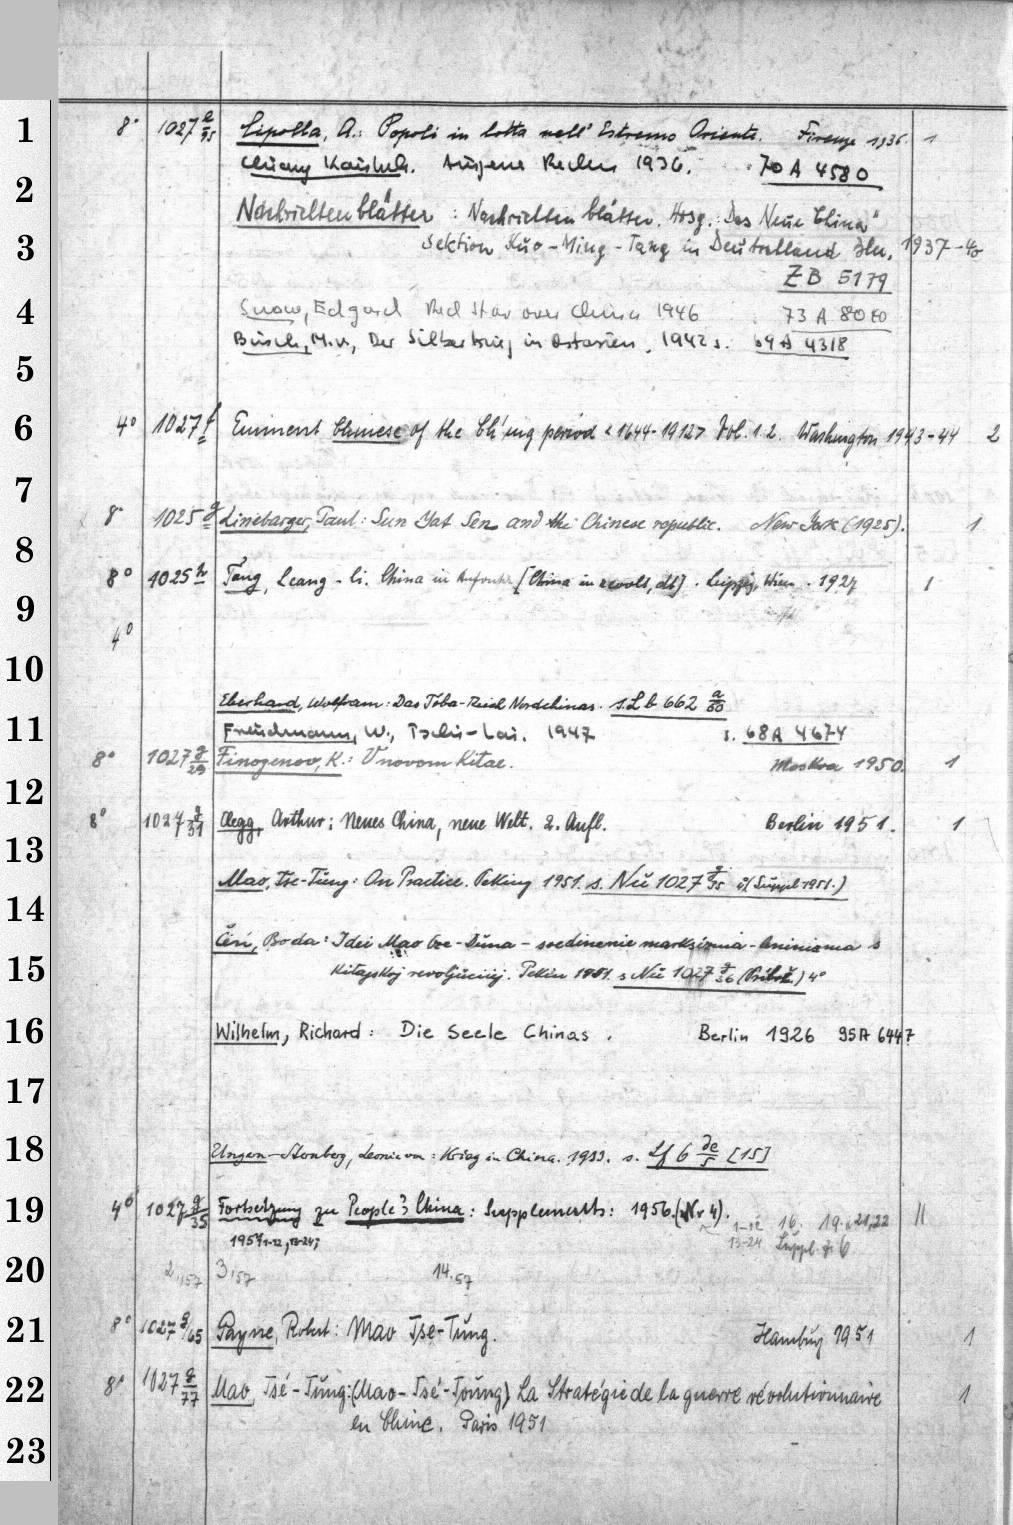 1
8° 1027 e/95 Cipolla, A.: Popoli in lotta nell' Estremo Oriente. Firenze 1936. 1
Chiang Kaishek. Reden 1936. 70 A 4580
2
Nachrichtenblätter : Nachrichtenblätter. Hrsg.: Das Neue China"
3
Sektion Kuo-Ming-Tang in Deutschland Bln. 1937-40
ZB 5179
4
Snow, Edgard Red Star over China 1946 73 A 8080
Busch, M.v., Der Silberkrieg in Ostasien. 1942 s. 69 A 4318
5
6
4° 1027 f Eminent Chinese of the Ch'ing period <1644-1912> Vol. 1.2. Washington 1943-44 2
7
8° 1025 g Linebarger, Paul: Sun Yat Sen and the Chinese republic. New York (1925). 1
8
8° 1025 h Tang, Leang-li. China in Aufruhr [China in revolt, dt.]. Leipzig, Wien. 1927 1
9
4°
10
Eberhard, Wolfram: Das Toba-Reich Nordchinas. s. Lb 662 a/80
11
Freudmann, W., Tschi-Lai. 1947 s. 68A 4674
8° 1027 g/29 Finogenov, K.: V novom Kitae. Moskva 1950. 1
12
8° 1027 g/31 Clegg, Arthur: Neues China, neue Welt. 2. Aufl. Berlin 1951. 1
13
Mao, Tse-Tung: On Practice. Peking 1951. s. Nu 1027 g/35 (Suppl 1951.)
14
Čen, Boda: Idei Mao Cze-Duna - soedinenie marksizma-leninizma s
15
kitajskoj revoljuciej. Pekin 1951. s Nu 1027 g/36 4°
16
Wilhelm, Richard: Die Seele Chinas. Berlin 1926 95A 6447
17
18
Ungern-Sternberg, Leonie von: Krieg in China. 1933. s. Lf 6 de/5 [15]
19
4° 1027 g/35 Fortsetzung zu People's China: Supplements: 1956. (Nr 4). 1-12 16. 19. 21,22 II
1957 1-12, 13-24; 13-24 Suppl. 6
20
2,157 3,57 14.57
21
8° 1027 g/65 Payne, Robert: Mao Tse-Tung. Hamburg 1951 1
22
8° 1027 g/77 Mao, Tsé-Tung: (Mao-Tsé-Toung) La Stratégie de la guerre révolutionnaire 1
en Chine. Paris 1951
23